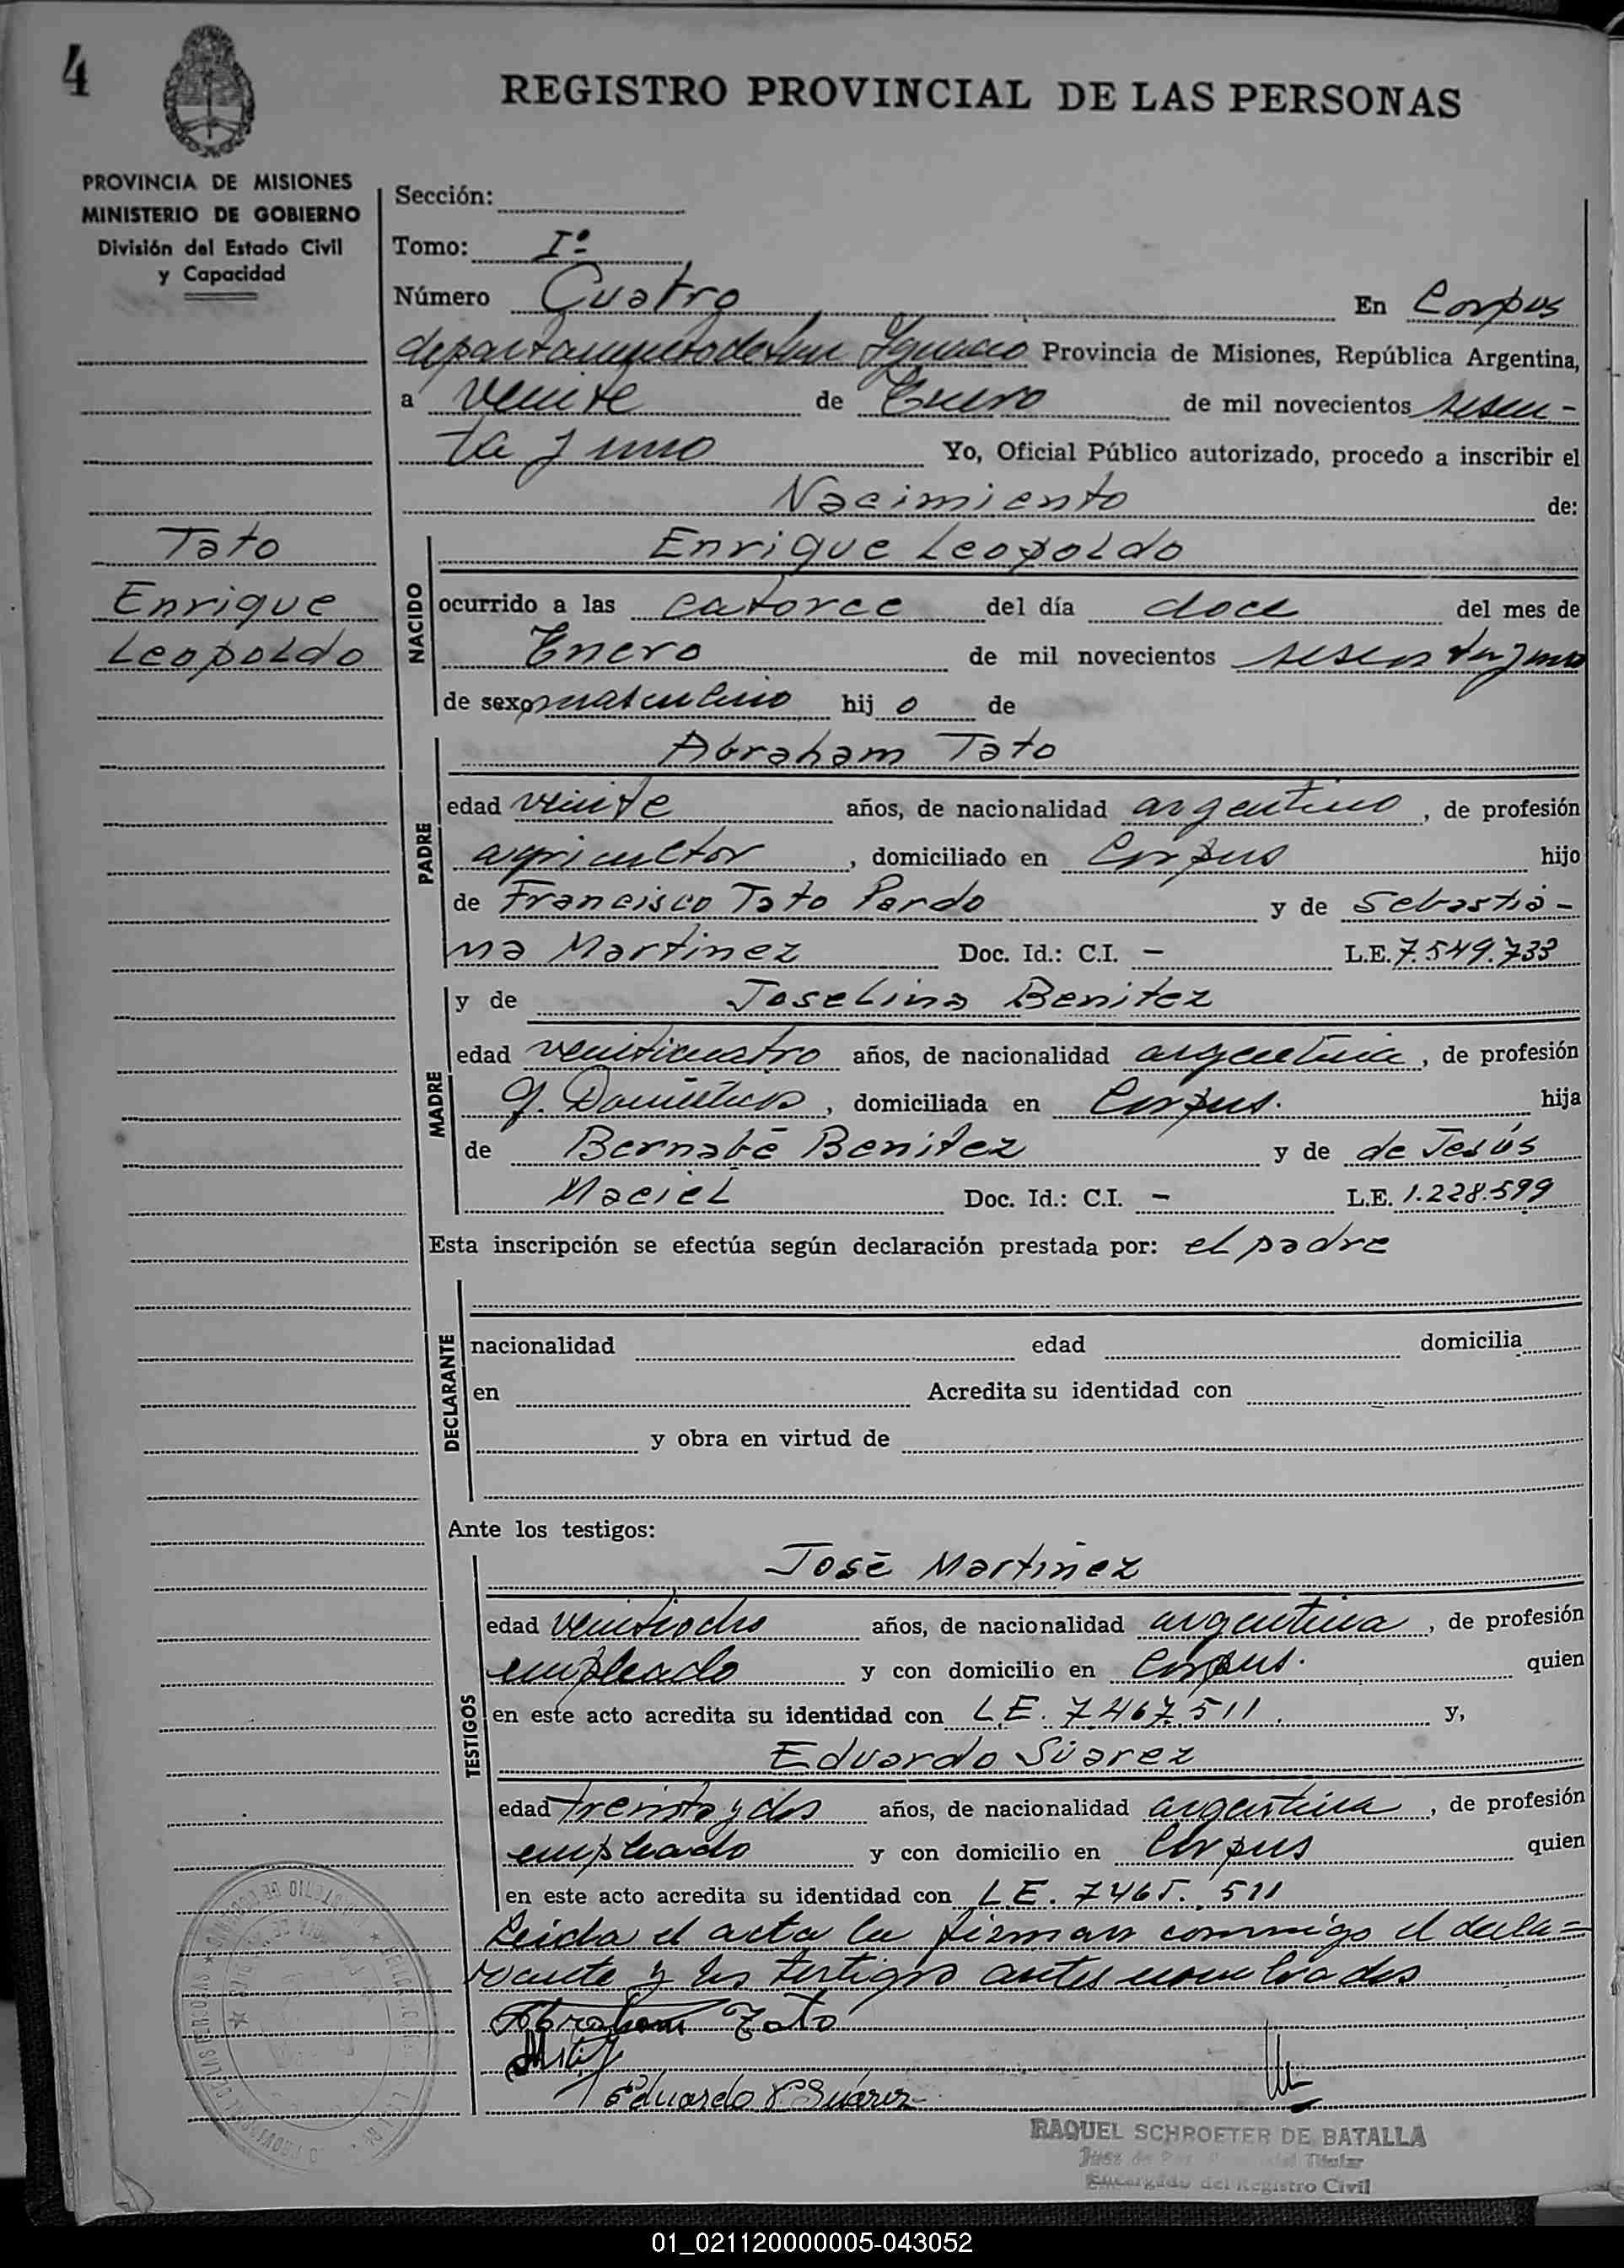 4
REGISTRO PROVINCIAL DE LAS PERSONAS
PROVINCIA DE MISIONES
MINISTERIO DE GOBIERNO
División del Estado Civil
y Capacidad
Tato
Enrique
Leopoldo
Sección:
Tomo: Iº
Número Cuatro En Corpus
departamento de San Ignacio Provincia de Misiones, República Argentina,
a veinte de Enero de mil novecientos sesen-
ta y uno Yo, Oficial Público autorizado, procedo a inscribir el
Nacimiento de:
NACIDO
Enrique Leopoldo
ocurrido a las catorce del día doce del mes de
Enero de mil novecientos sesenta y uno
de sexo masculino hijo de
PADRE
Abraham Tato
edad veinte años, de nacionalidad argentino, de profesión
agricultor, domiciliado en Corpus hijo
de Francisco Tato Pardo y de Sebastia-
na Martinez Doc. Id.: C.I. — L.E. 7.549.733
MADRE
y de Joselina Benitez
edad veinticuatro años, de nacionalidad argentina, de profesión
q. Domésticos, domiciliada en Corpus. hija
de Bernabé Benitez y de de Jesús
Maciel Doc. Id.: C.I. — L.E. 1.228.599
Esta inscripción se efectúa según declaración prestada por: el padre
DECLARANTE
nacionalidad edad domicilia
en Acredita su identidad con
y obra en virtud de
Ante los testigos:
TESTIGOS
José Martinez
edad veintiocho años, de nacionalidad argentina, de profesión
empleado y con domicilio en Corpus. quien
en este acto acredita su identidad con L.E. 7.467.511. y,
Eduardo Súarez
edad treinta y dos años, de nacionalidad argentina, de profesión
empleado y con domicilio en Corpus quien
en este acto acredita su identidad con L.E. 7465.511
Leida el acta la firman conmigo el decla=
rante y los testigos antes nombrados
Abraham Tato
Eduardo Suárez
RAQUEL SCHROETER DE BATALLA
Juez de Paz Titular
Encargado del Registro Civil
01_021120000005-043052